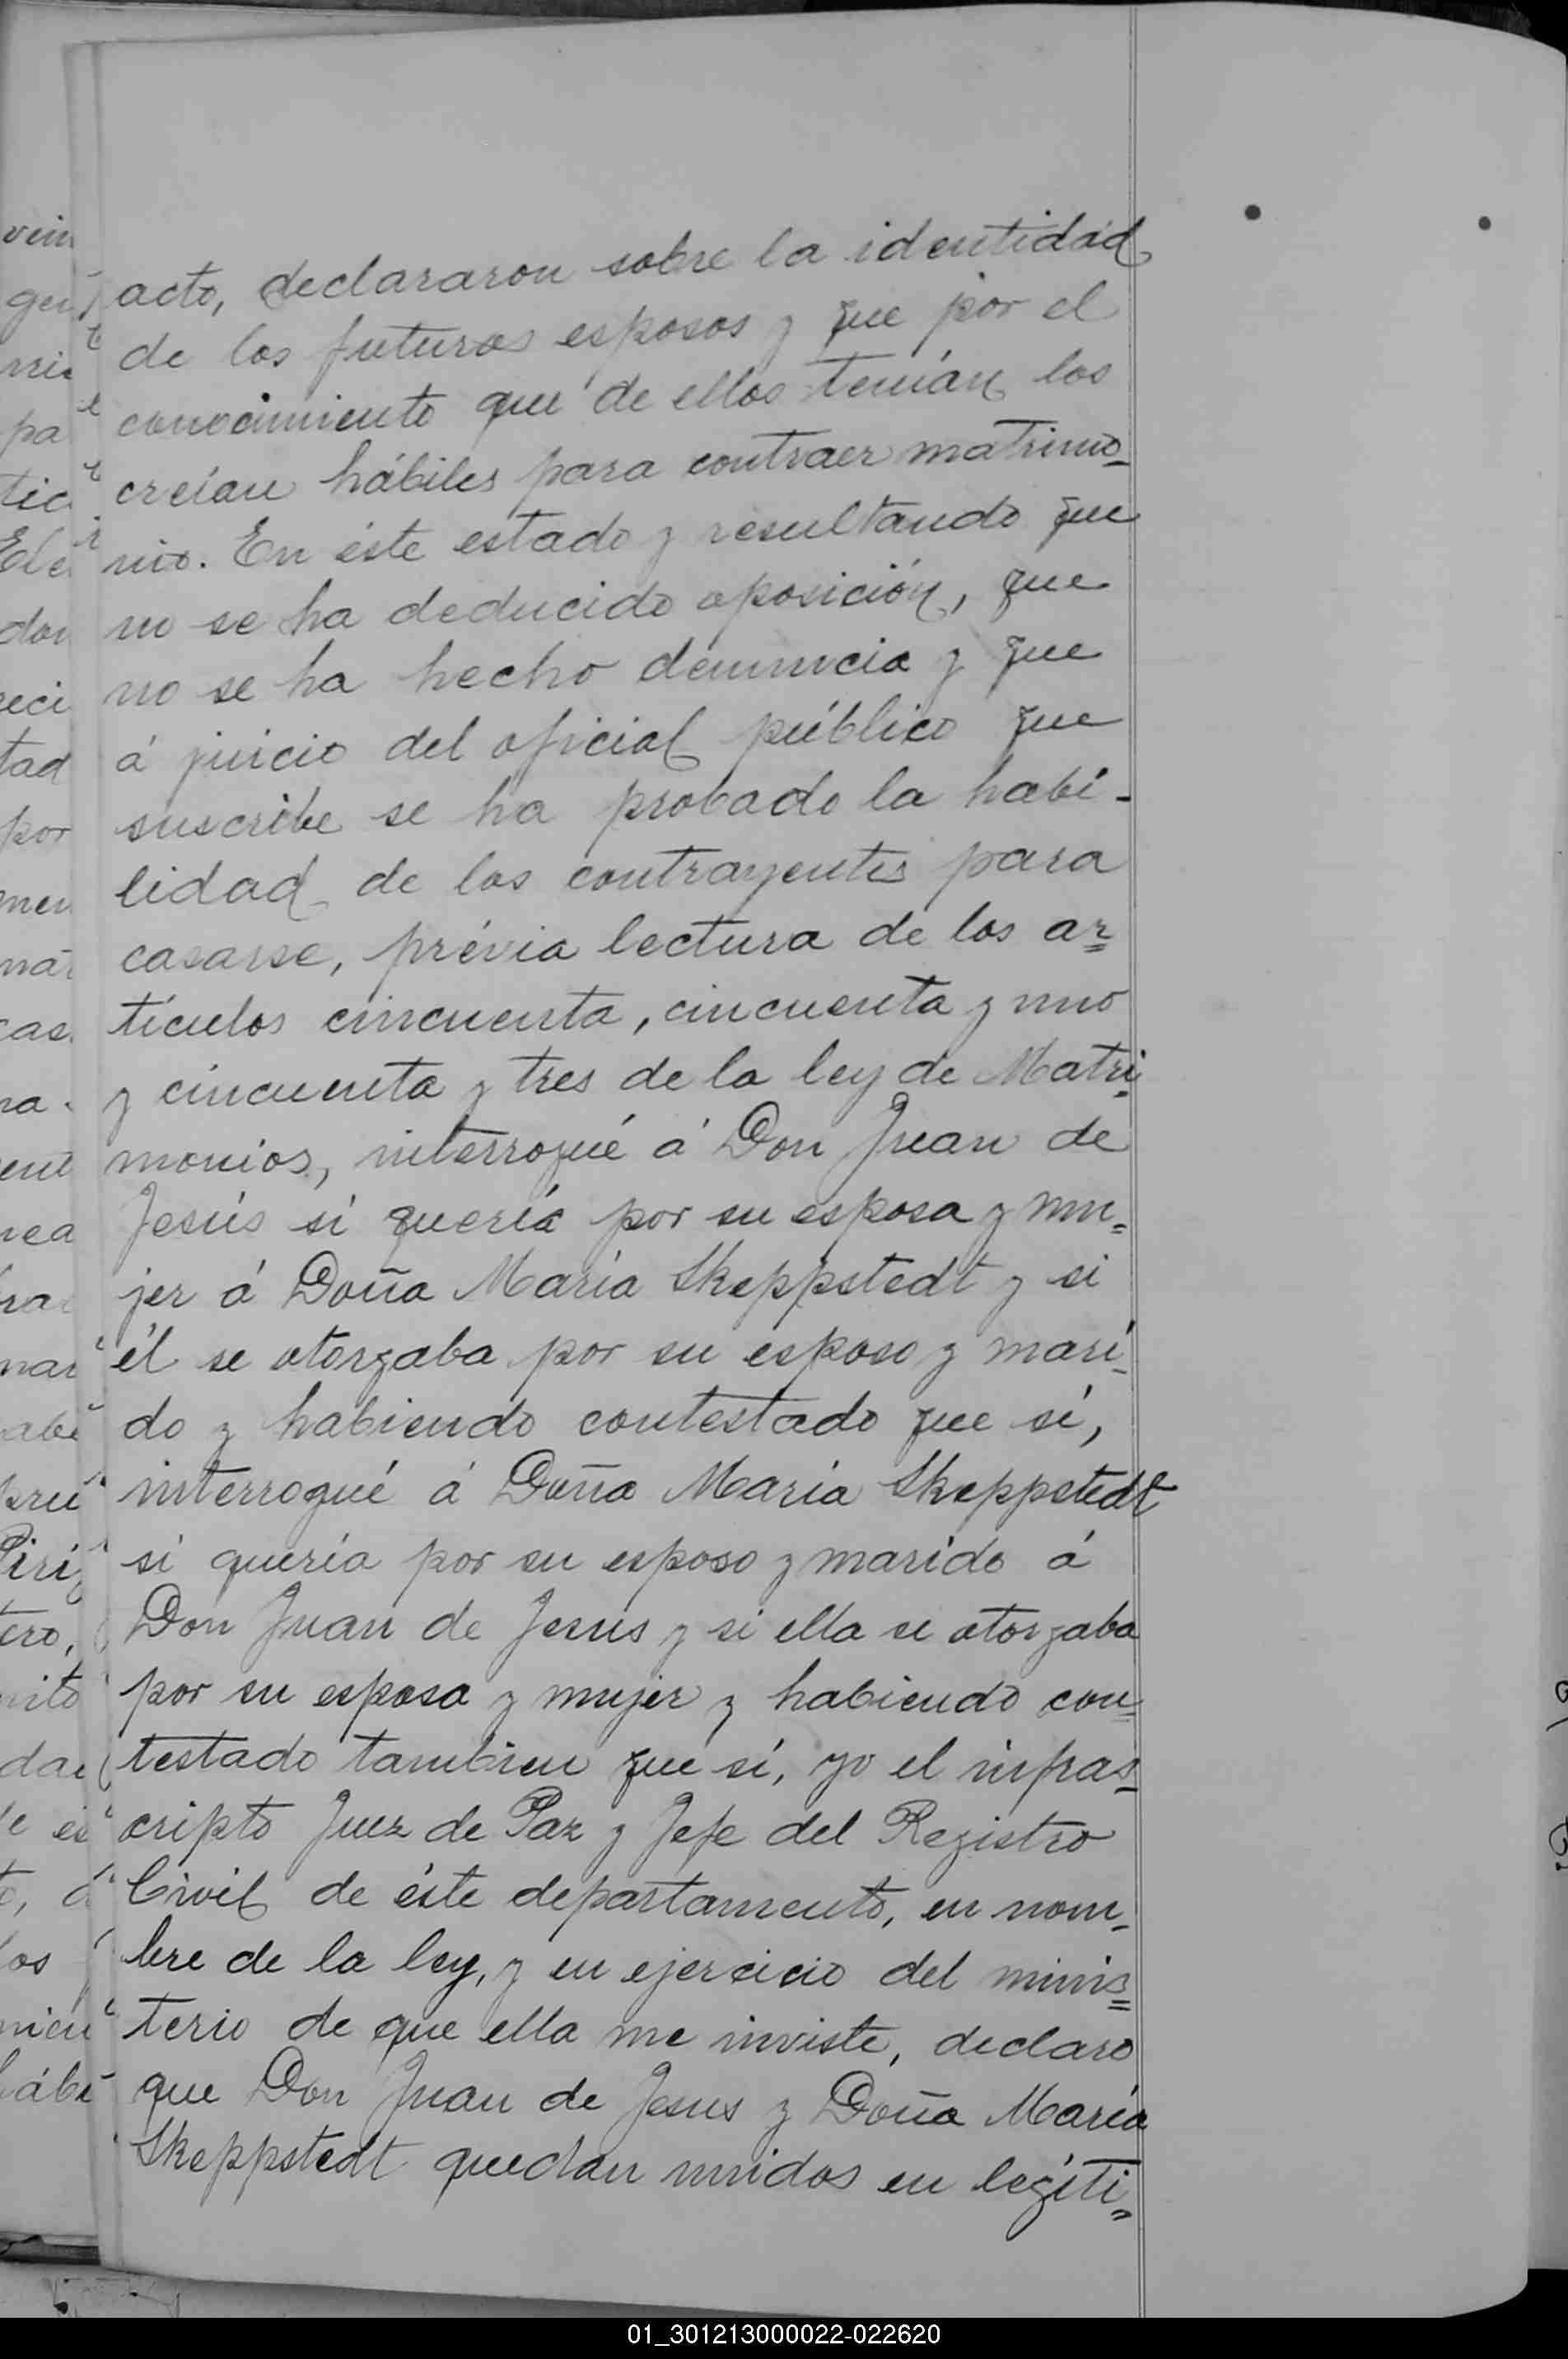 acto, declararon sobre la identidad
de los futuros esposos y que por el
conocimiento que de ellos tenían los
creían hábiles para contraer matrimo-
nio. En éste estado y resultando que
no se ha deducido oposición, que
no se ha hecho denuncia y que
á juicio del oficial público que
suscribe se ha probado la habi-
lidad de los contrayentes para
casarse, prévia lectura de los ar=
tículos cincuenta, cincuenta y uno
y cincuenta y tres de la ley de Matri=
monios, interrogué á Don Juan de
Jesús si quería por su esposa y mu=
jer á Doña María Skeppstedt y si
él se otorgaba por su esposo y mari=
do y habiendo contestado que sí,
interrogué á Doña María Skeppstedt
si quería por su esposo y marido á
Don Juan de Jesus y si ella se otorgaba
por su esposa y mujer y habiendo con=
testado tambien que sí, yo el infras=
cripto Juez de Paz y Jefe del Registro
Civil de éste departamento, en nom=
bre de la ley, y en ejercicio del minis=
terio de que ella me inviste, declaro
que Don Juan de Jesus y Doña María
Skeppstedt quedan unidos en legíti=
01_301213000022-022620